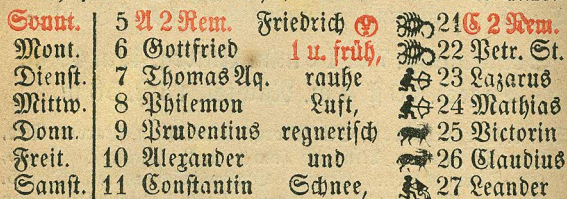 Sonnt. 5 A 2 Rem. Friedrich 21 C 2 Rem.
Mont. 6 Gottfried 1 u. früh, 22 Petr. St.
Dienst. 7 Thomas Aq. rauhe 23 Lazarus
Mittw. 8 Philemon Luft, 24 Mathias
Donn. 9 Prudentius regnerisch 25 Victorin
Freit. 10 Alexander und 26 Claudius
Samst. 11 Constantin Schnee, 27 Leander